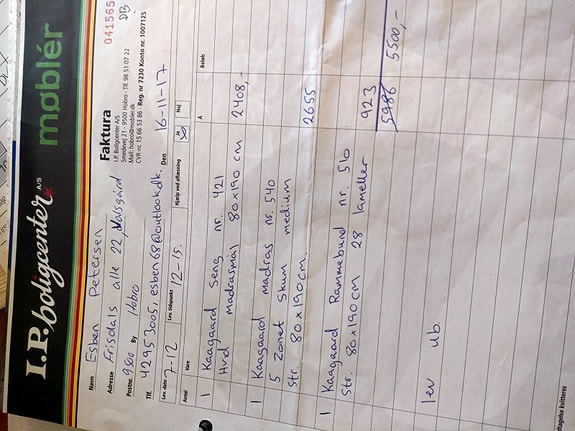 I.P. boligcenter A/S
møblér
Navn Esben Petersen
Adresse Frisdals alle 22, Valsgård
Postnr. 9500 By Hobro
Tlf. 42953005, esben68@outlook.dk. Den 16-11-17
Faktura
041565
DB
I.P. Boligcenter A/S
Smedevej 21 - 9500 Hobro - Tlf. 98 51 07 22
Mail: hobro@mobler.dk
CVR-nr. 15 66 53 86 - Reg. nr 7230 Konto nr. 1007125
Lev. dato 7-12 Lev. tidspunkt 12-15. Hjælp ved aflæsning Ja Nej
Antal Vare Á Beløb
1 Kaagaard Seng nr. 421
Hvid madrasmål 80x190 cm 2408,-
1 Kaagaard madras nr. 540
5 Zonet Skum medium
str 80x190cm. 2655
1 Kaagaard Rammebund nr. 510
Str. 80x190cm 28 lameller 923
5986 5500,-
lev ub